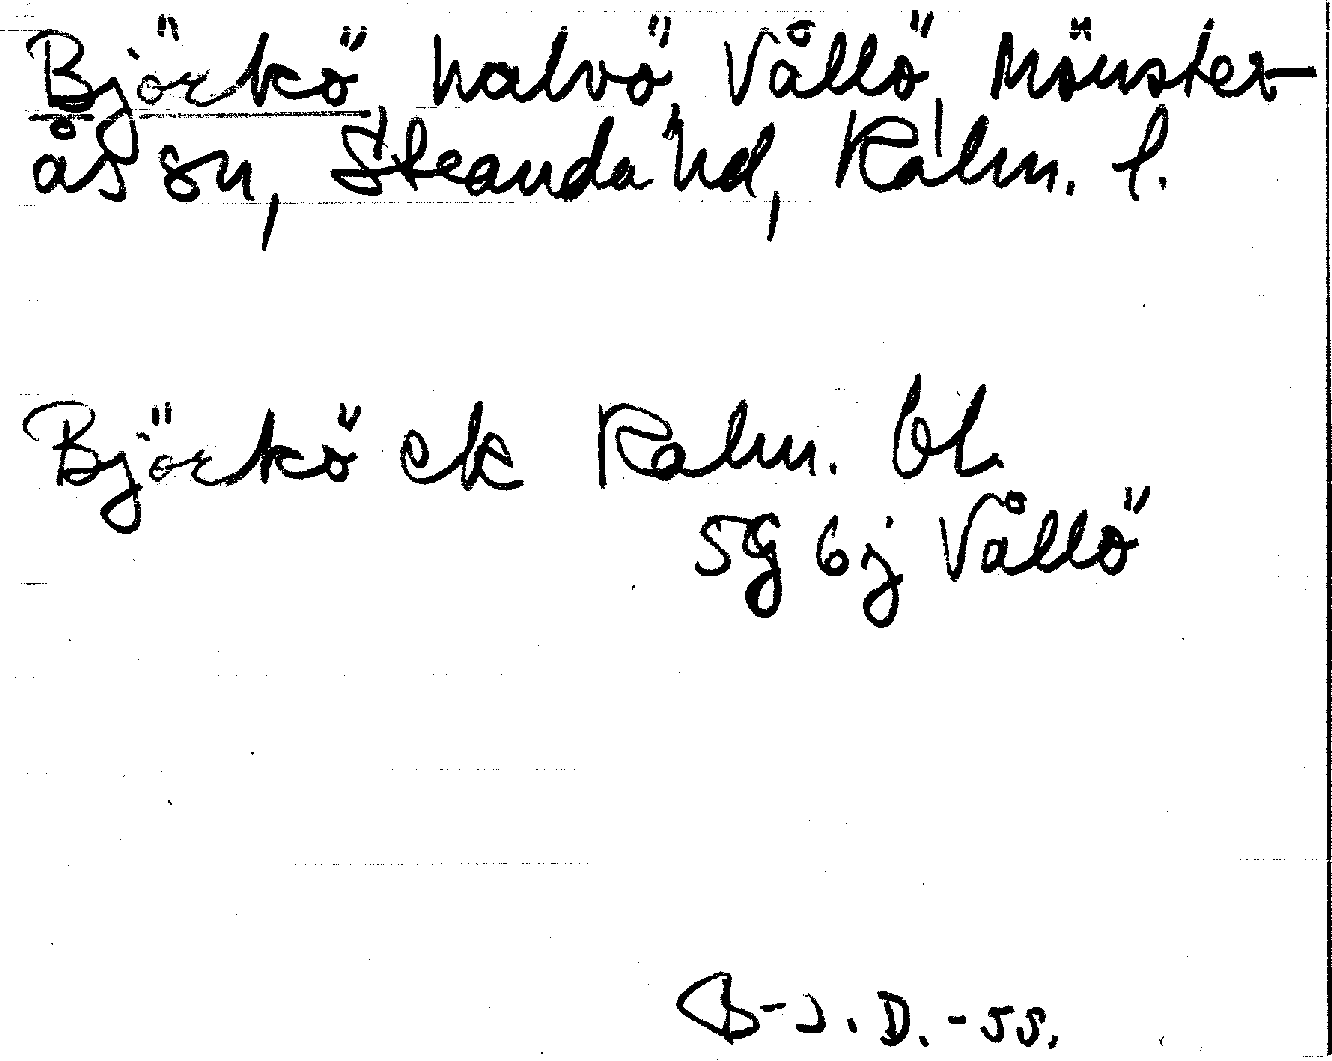 Björkö, halvö, Vållö, Mönster-
ås sn, Stranda hd, Kalm. l.
Björkö ek Kalm. bl.
5G 6j Vållö
B-J. D. -55.